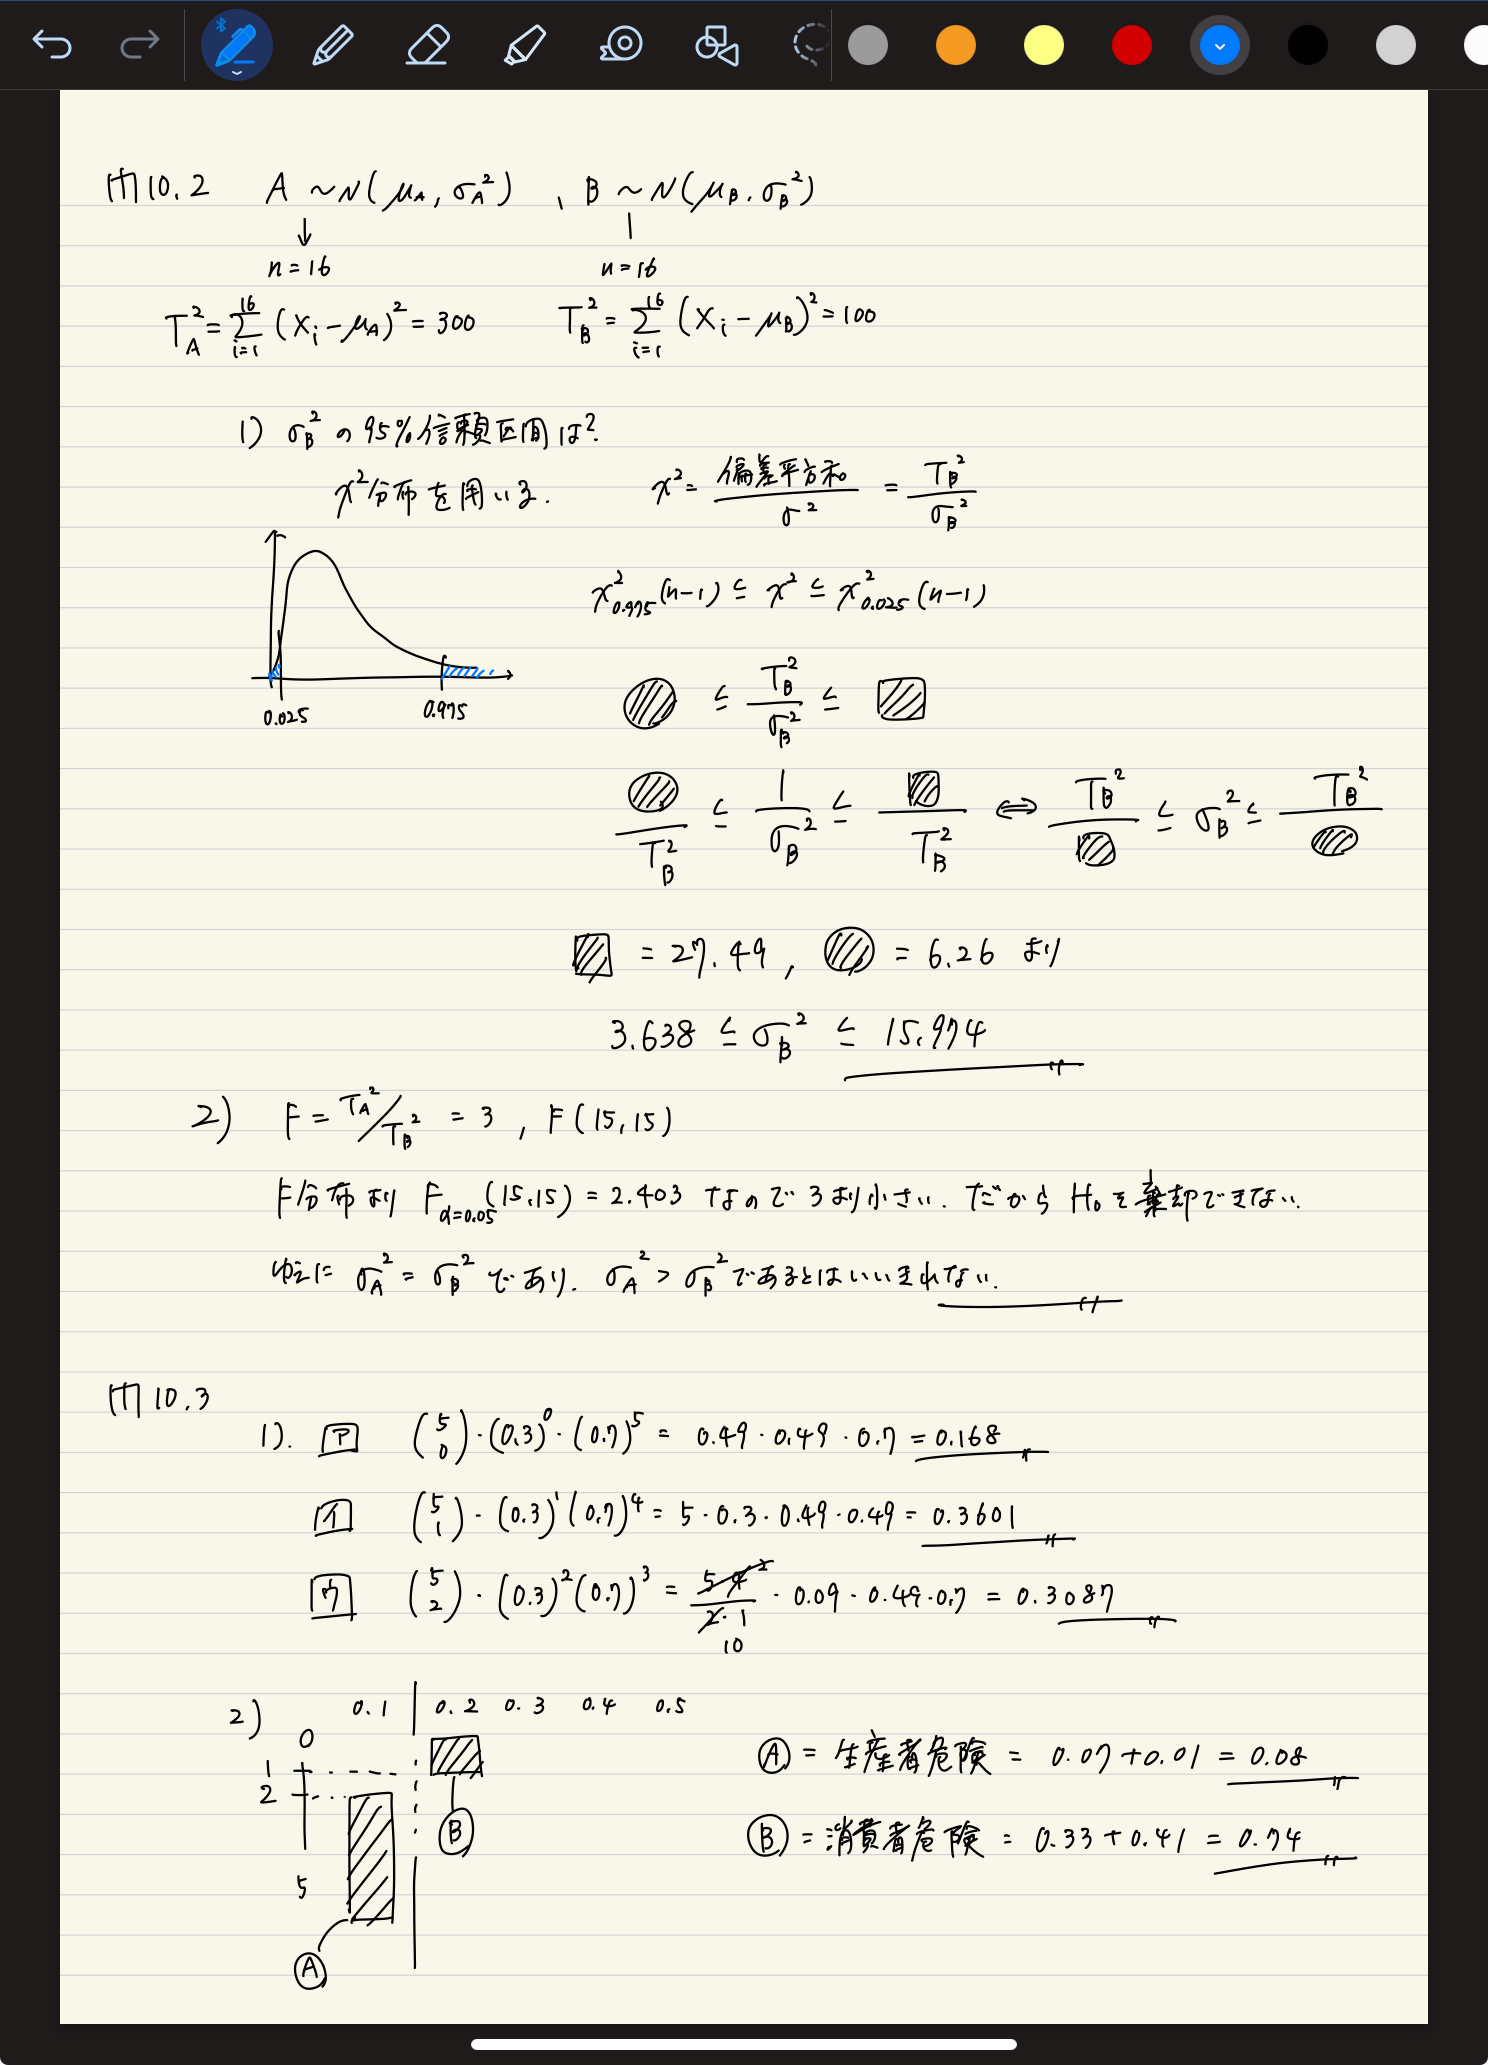 問10.2 A ~N(μA, σA²) , B ~ N(μB, σB²)
↓
n=16 n=16
TA² = Σ_{i=1}^{16} (Xi-μA)² = 300 TB² = Σ_{i=1}^{16} (Xi-μB)² = 100
1) σB² の 95%信頼区間は?
χ²分布を用いる. χ² = 偏差平方和/σ² = TB²/σB²
χ²0.975(n-1) ≦ χ² ≦ χ²0.025(n-1)
≦ TB²/σB² ≦
0.025 0.975
/TB² ≦ 1/σB² ≦ /TB² ⇔ TB²/ ≦ σB² ≦ TB²/
= 27.49, = 6.26 より
3.638 ≦ σB² ≦ 15.974
2) F = TA²/TB² = 3 , F(15,15)
F分布より Fα=0.05(15,15) = 2.403 なので 3より小さい. だから H0を棄却できない.
ゆえに σA² = σB² であり. σA² > σB² であるとはいいきれない.
問10.3
1). ア (5 0)・(0.3)⁰・(0.7)⁵ = 0.49・0.49・0.7 = 0.168
イ (5 1)・(0.3)¹(0.7)⁴ = 5・0.3・0.49・0.49 = 0.3601
ウ (5 2)・(0.3)²(0.7)³ = 5・4/2・1・0.09・0.49・0.7 = 0.3087
2
10
2) 0.1 0.2 0.3 0.4 0.5
0
1
2
5
A
B
Ⓐ = 生産者危険 = 0.07+0.01 = 0.08
Ⓑ = 消費者危険 = 0.33+0.41 = 0.74